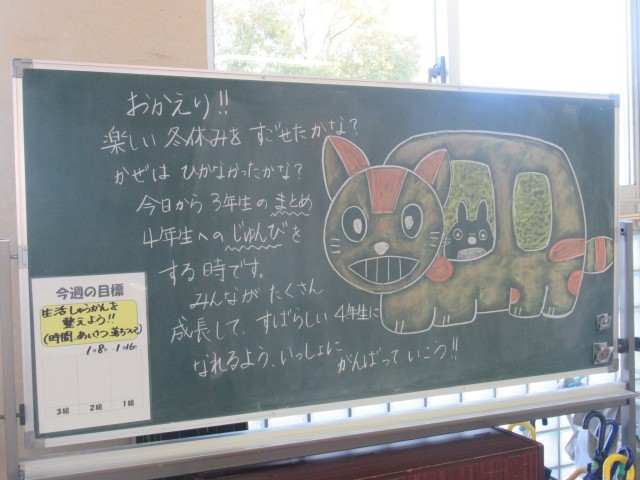 おかえり!!
楽しい 冬休みを すごせたかな?
かぜは ひかなかったかな?
今日から 3年生の まとめ
4年生への じゅんび を
する 時です。
みんなが たくさん
成長して、すばらしい 4年生に
なれるよう、いっしょに がんばって いこう!!
今週の目標
生活しゅうかんを
整えよう!!
(時間、あいさつ、落ちつき)
1月8日~1月16日
3組 2組 1組